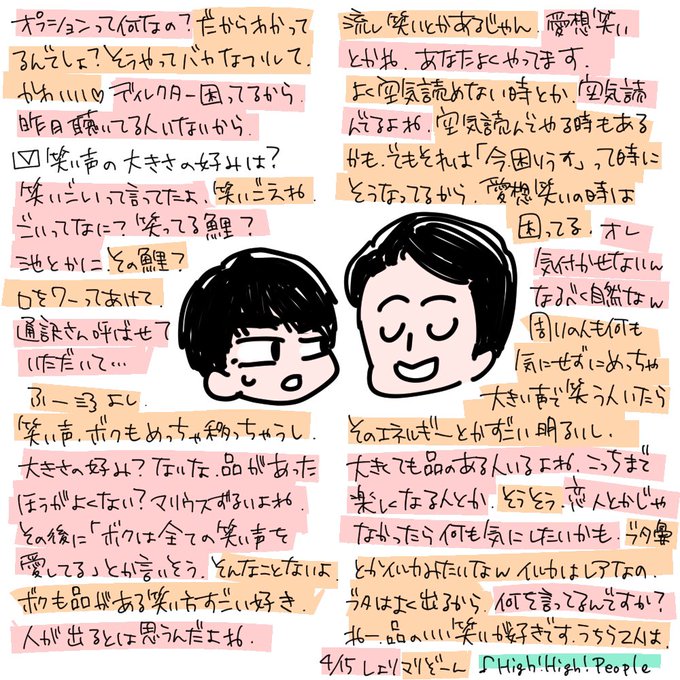 オプションって何なの？だからわかって
るんでしょ？そうやってバカなフリして.
かわいい♡ディレクター困ってるから.
昨日聴いてる人いないから.
笑い声の大きさの好みは？
笑いごいって言ってたよ. 笑いごえね.
ごいってなに？笑ってる鯉？
池とかに. その鯉？
口をワーってあけて.
通訳さん呼ばせて
いただいて…
ふーううよし.
笑い声. ボクもめっちゃ移っちゃうし.
大きさの好み？ないな. 品があった
ほうがよくない？マリウスずるいよね.
その後に「ボクは全ての笑い声を
愛してる」とか言いそう. そんなことないよ.
ボクも品がある笑い方すごい好き.
人が出るとは思うんだよね.
流し笑いとかあるじゃん. 愛想笑い
とかね. あなたよくやってます.
よく空気読めない時とか. 空気読
んでるよね. 空気読んでやる時もある
かも. でもそれは「今困りうす」って時に
そうなってるから. 愛想笑いの時は
困ってる. オレ
気付かせないん
なるべく自然なん
周りの人も何も
気にせずにめっちゃ
大きい声で笑う人いたら
そのエネルギーとかすごい明るいし.
大きくても品のある人いるよね. こっちまで
楽しくなる人とか. そうそう. 恋人とかじゃ
なかったら何も気にしたいかも. ブタ曇
とかイルカみたいなw イルカはレアなの.
ブタはよく出るから. 何を言ってるんですか？
ねー. 品のいい笑いが好きです. うちら2人は.
4/15 しょり マリぞーん ♪High!High!People